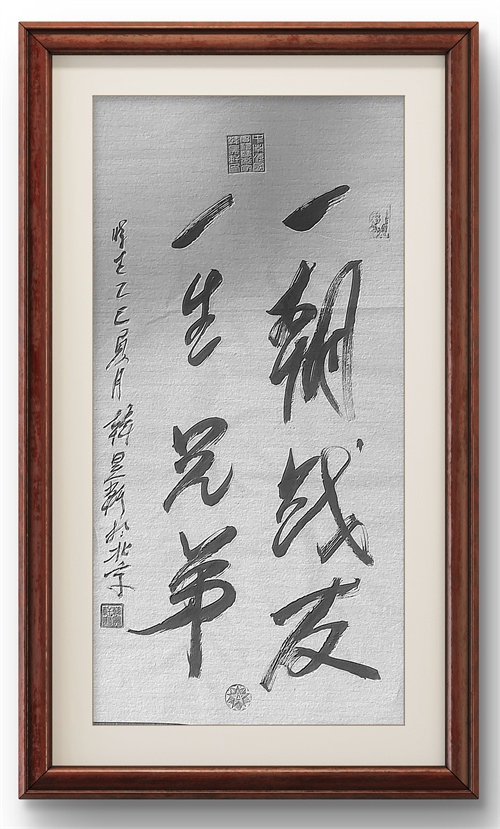 一朝战友
一生兄弟
时在乙巳夏月韩於北京